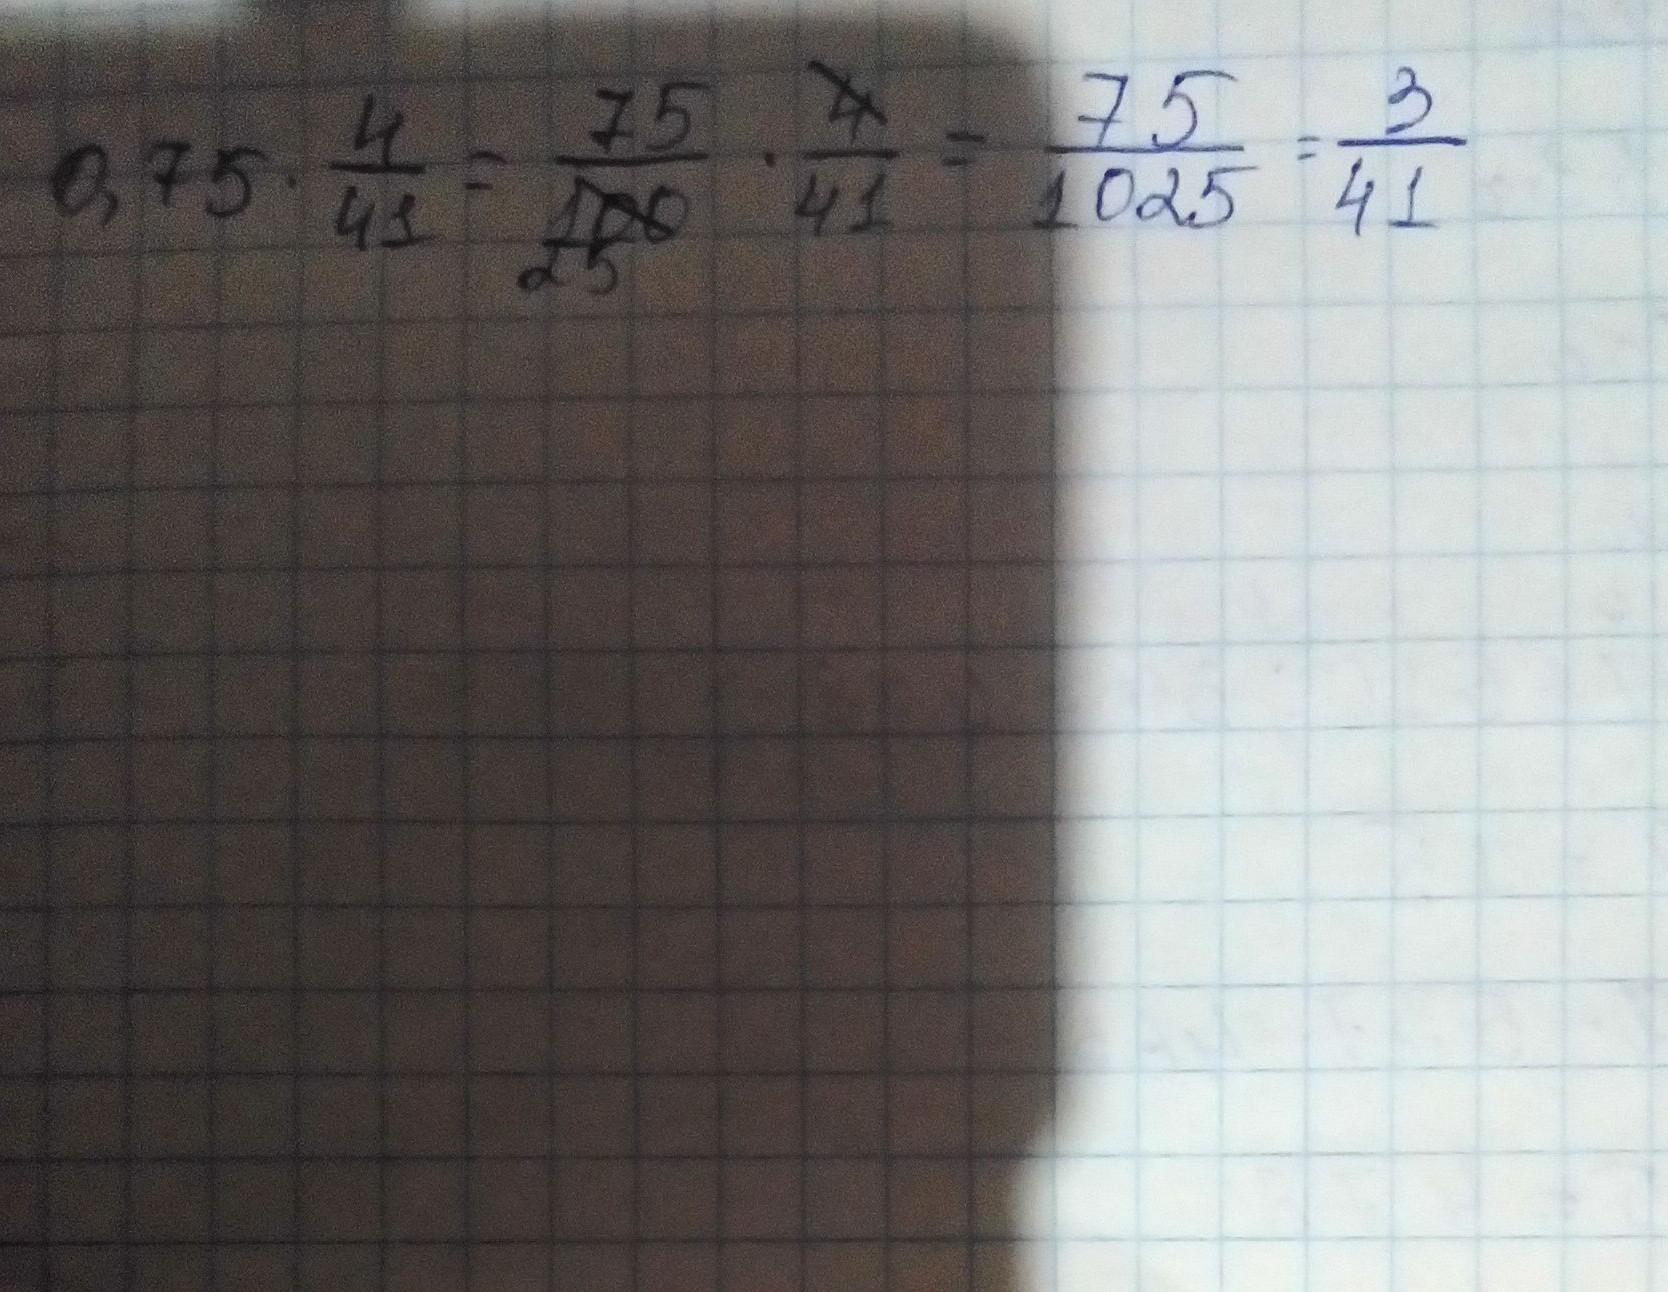 0,75 · 4/41 = 75/100 25 · 4/41 = 75/1025 = 3/41